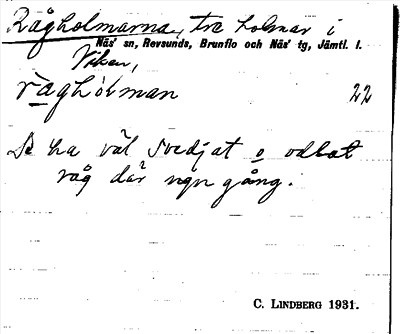 Rågholmarna, tre holmar i
Näs' sn, Revsunds, Brunflo och Näs' tg, Jämtl. l.
Viken,
råghólman 22
De ha väl svedjat o odlat
råg där ngn gång.
C. LINDBERG 1931.